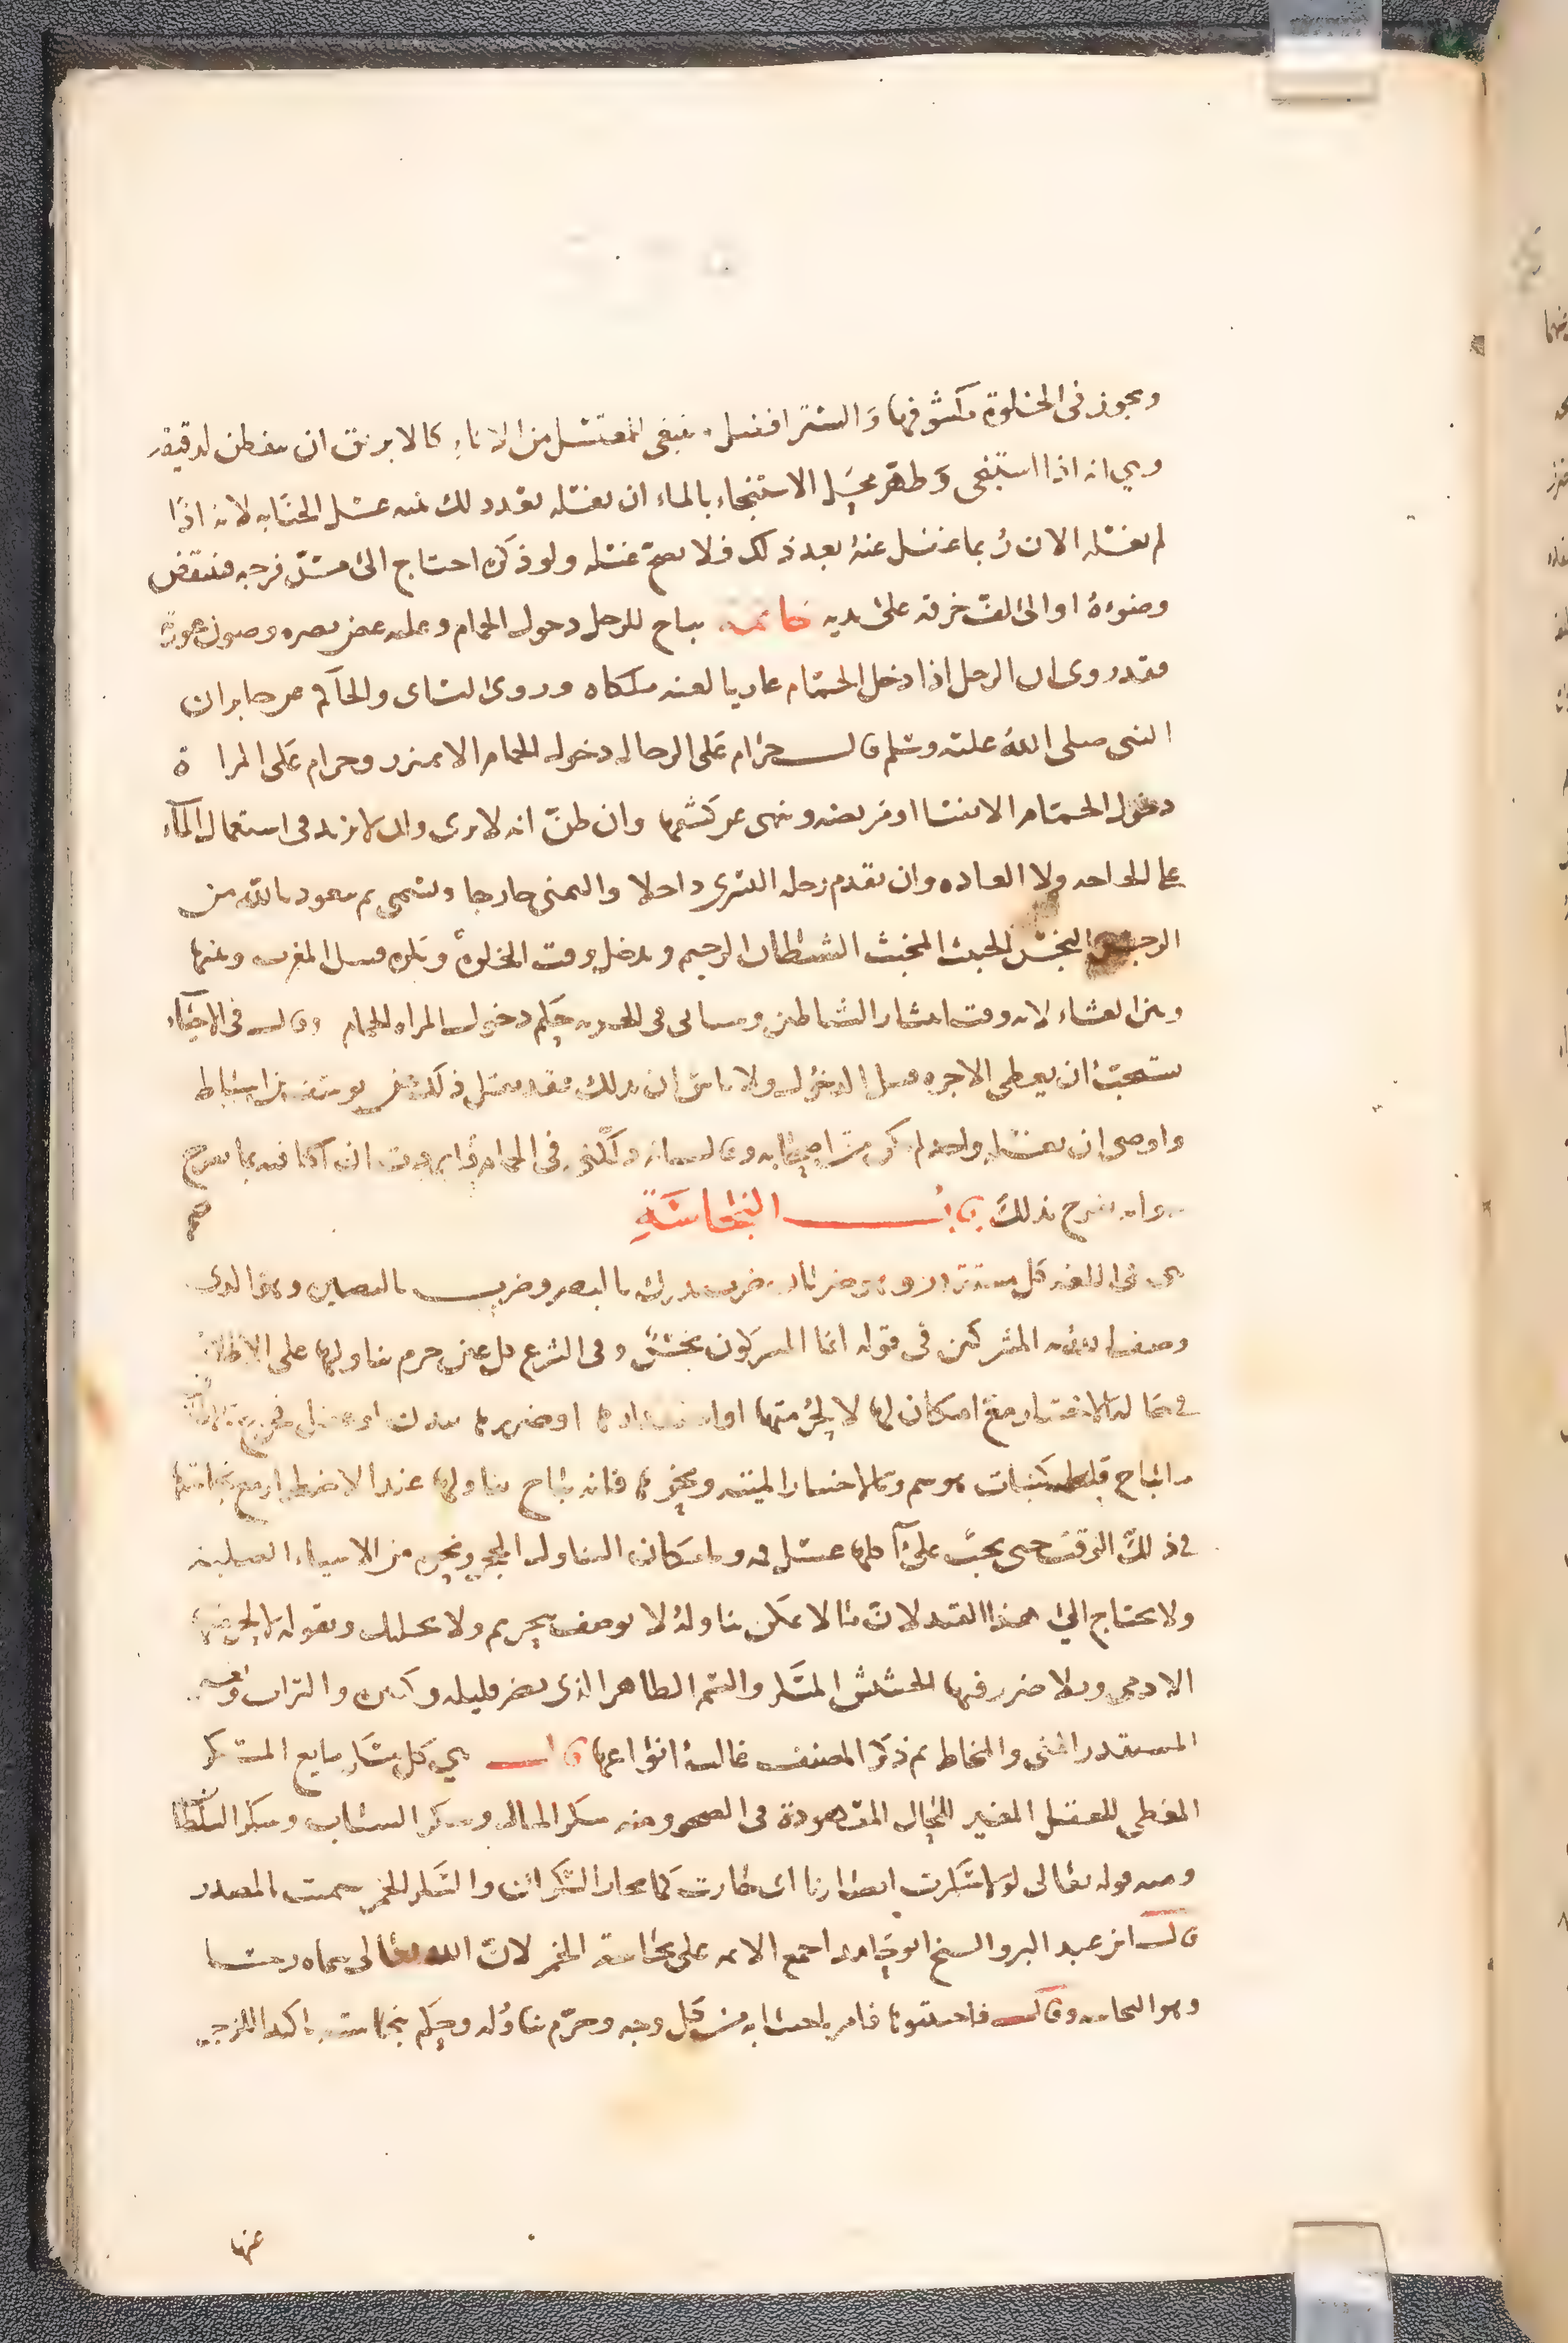 ويجوز في الخلوة مكشوفها والستر افضل ينبغي للمغتسل من الاناء كالابريق ان يتفطن لدقيقة
وهي انه اذا استنجى وطهر محل الاستنجاء بالماء ان يغسله بعد ذلك بنيه غسل الجنابه لانه اذا
لم يغسله الان ربما غفل عنه بعد ذلك فلا يصح غسله ولو ذكره احتاج الى مس فرجه فينتقض
وضوءه او الى لف خرقه على يديه خاتمه يباح للرجل دخول الحمام وعليه غض بصره وصون عورة
فقد روي ان الرجل اذا دخل الحمام عاريا لعنه ملكاه وروى النساي والحاكم عن جابر ان
النبي صلى الله عليه وسلم قال حرام على الرجال دخول الحمام الا بمئزر وحرام على المراة
دخول الحمام الا نفسا او مريضه ونهي عن كشفها وان ظن انه لا يرى وان لا يزيد في استعمال الماء
على الحاجه ولا العاده وان يقدم رجله اليسرى داخلا واليمنى خارجا ويسمي ثم يتعوذ بالله من
الرجس النجس الخبيث المخبث الشيطان الرجيم ويدخل وقت الخلوة ويكره قبيل المغرب وبينها
وبين العشاء لانه وقت انتشار الشياطين وسياتي في الجزيه حكم دخول المراه الحمام وقال في الاحياء
يستحب ان يعطي الاجره قبل الدخول ولا باس ان يدلك فقد نقل ذلك عن يوسف بن اسباط
واوصى ان يغسله واحد لم يكن من اصحابه وقال انه دلكني في الحمام فاردت ان اكافيه بما يفرح
وانه يفرح بذلك باب النجاسة
هي في اللغه كل مستقذر وهو ضربان ضرب يدرك بالبصر وضرب بالبصاير وهو الذي
وصف الله به المشركين في قوله انما المشركون نجس وفي الشرع كل عين حرم تناولها على الاطلاق
في حالة الاختيار مع امكانها لا لحرمتها او استقذارها او ضررها ببدن او عقل فخرج
المباح قليله كنبات وسم وبالاختيار الميته ونحوها فانه يباح تناولها عند الاضطرار مع نجاستها
في ذلك الوقت حتى يجب على آكلها غسل فمه وبامكان التناول الحجر ونحوه من الاشياء الصلبه
ولا يحتاج الى هذا القيد لان ما لا يمكن تناوله لا يوصف بتحريم ولا تحليل وبقوله لا لحرمتها
الادمي وبلا ضرر فيها الحشيش المسكر والسم الطاهر الذي يضر قليله وكثيره والتراب
المستقذر المني والمخاط ثم ذكر المصنف غالب انواعها قال هي كل مسكر مايع المسكر
المغطي للعقل المغير للحال المعهودة في الصحو ومنه سكر المال وسكر الشباب وسكر السلطان
ومنه قوله تعالى لقالوا سكرت ابصارنا اي حارت كما يحار السكران والسكر الخمر سميت بالمصدر
قال ابن عبد البر والشيخ ابو حامد اجمع الائمه على نجاسة الخمر لان الله تعالى سماه رجسا
وهو النجاسه وقال فاجتنبوه فامر باجتنابه من كل وجه وحرم تناوله وحكم بنجاسته تاكيدا للزجر
عنها